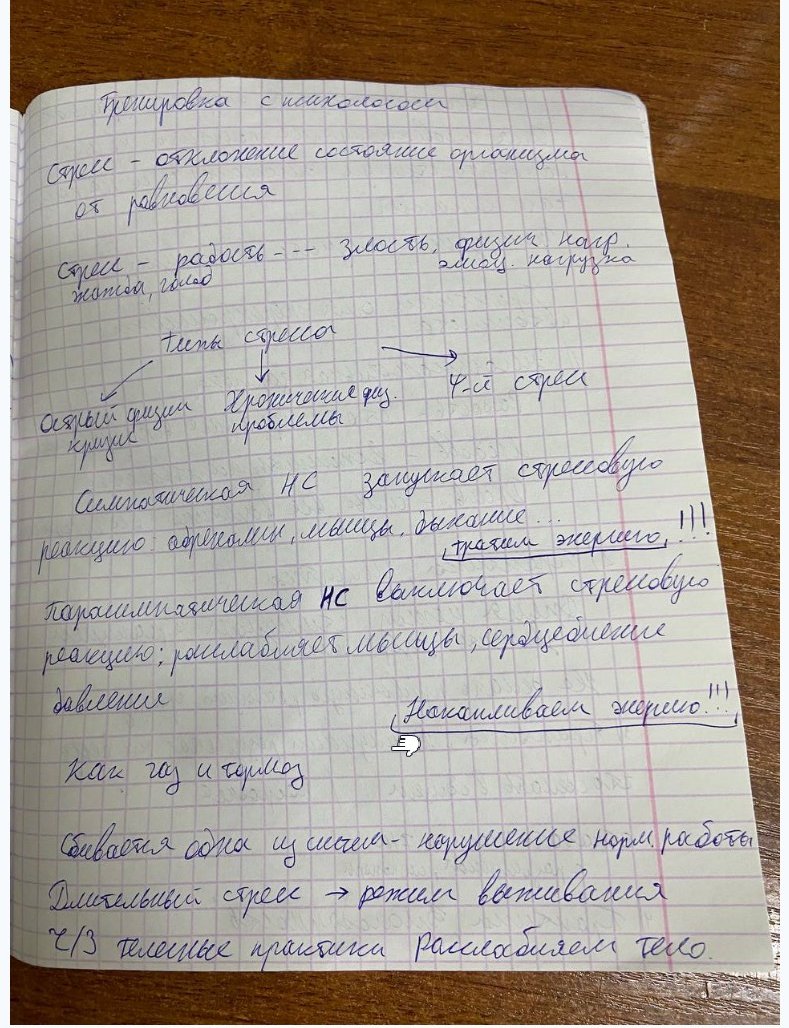 Тренировка с психологом
Стресс - отклонение состояние организма
от равновесия
Стресс - радость --- злость, физич. нагр.
жажда, голод эмоц. нагрузка
Типы стресса
Острый физич Хронические физ. Ψ-й стресс
кризис проблемы
Симпатическая НС запускает стрессовую
реакцию: адреналин, мышцы, дыхание...
тратим энергию !!!
Парасимпатическая НС выключает стрессовую
реакцию; расслабляет мышцы, сердцебиение
давление
Накапливаем энергию!!!
Как газ и тормоз
Сбивается одна из систем - нарушение норм. работы
Длительный стресс → режим выживания
Ч/З телесные практики расслабляем тело.